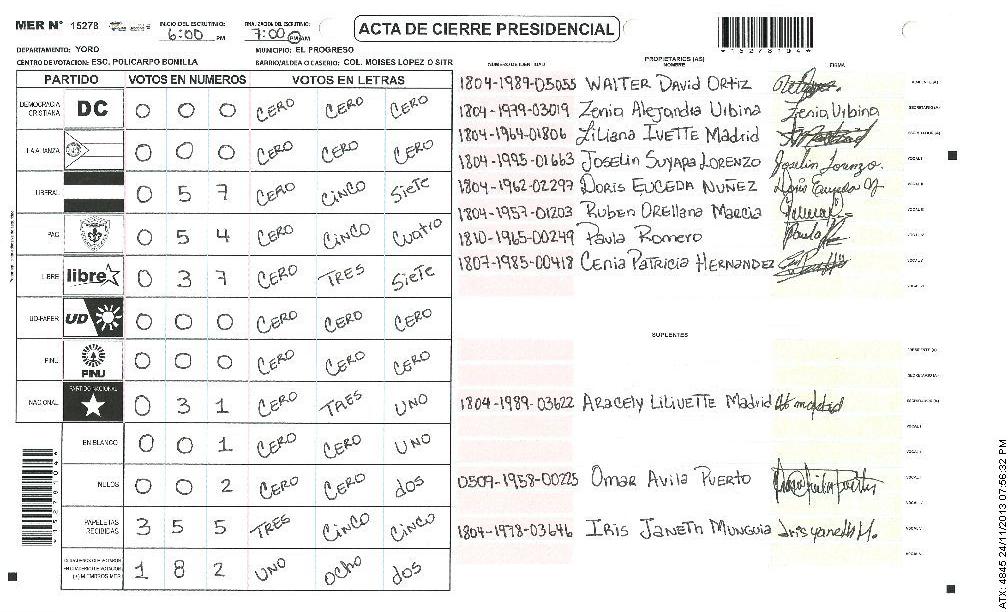 MER N° 15278
INICIO DEL ESCRUTINIO: 6:00 PM
FINALIZACION DEL ESCRUTINIO: 7:00 PM
ACTA DE CIERRE PRESIDENCIAL
DEPARTAMENTO: YORO
MUNICIPIO: EL PROGRESO
CENTRO DE VOTACION: ESC. POLICARPO BONILLA
BARRIO/ALDEA O CASERIO: COL. MOISES LOPEZ O SITR
PARTIDO VOTOS EN NUMEROS VOTOS EN LETRAS
DEMOCRACIA CRISTIANA DC 0 0 0 CERO CERO CERO
LA ALIANZA 0 0 0 CERO CERO CERO
LIBERAL 0 5 7 CERO CINCO SIETE
PAC 0 5 4 CERO CINCO CUATRO
LIBRE libre 0 3 7 CERO TRES SIETE
UD-FAPER UD 0 0 0 CERO CERO CERO
PINU PINU 0 0 0 CERO CERO CERO
NACIONAL PARTIDO NACIONAL 0 3 1 CERO TRES UNO
EN BLANCO 0 0 1 CERO CERO UNO
NULOS 0 0 2 CERO CERO dos
PAPELETAS RECIBIDAS 3 5 5 TRES CINCO CINCO
1 8 2 UNO OCHO dos
*15278104*
NUMERO DE IDENTIDAD
PROPIETARIOS (AS)
NOMBRE
FIRMA
1804-1989-05055 WALTER David Ortiz
1804-1979-03019 Zenia Alejandra Urbina Zenia Urbina
1804-1964-01806 Liliana IVETTE Madrid
1804-1995-01663 JOSELIN SUYAPA LORENZO Joselin Lorenzo.
1804-1962-02297 DORIS EUCEDA NUÑEZ
1804-1957-01203 Ruben ORellana Marcia
1810-1965-00249 Paula Romero
1807-1985-00418 Cenia Patricia HERNANDEZ
SUPLENTES
1804-1989-03622 ARACELY LILIVETTE Madrid
0509-1958-00225 Omar Avila PUERTO
1804-1978-03646 IRIS JANETH MUNGUIA
ATX: 4845 24/11/2013 07:56:32 PM